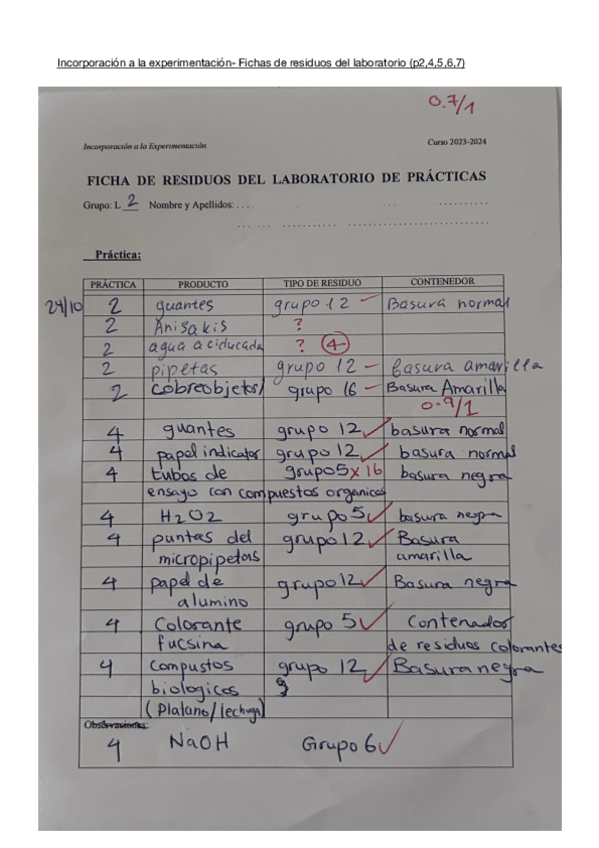 Incorporación a la experimentación- Fichas de residuos del laboratorio (p2,4,5,6,7)
0.7/1
Incorporación a la Experimentación Curso 2023-2024
FICHA DE RESIDUOS DEL LABORATORIO DE PRÁCTICAS
Grupo: L 2 Nombre y Apellidos: . . .
Práctica:
PRÁCTICA PRODUCTO TIPO DE RESIDUO CONTENEDOR
24/10 2 guantes grupo 12 – Basura normal
2 Anisakis ?
2 agua aciducada ? 4
2 pipetas grupo 12 – basura amarilla
2 cobreobjetos/ grupo 16 – Basura Amarilla
0.9/1
4 guantes grupo 12 ✓ basura normal
4 papel indicator grupo 12 ✓ basura normal
4 tubos de grupo 5 x 16 basura negra
ensayo con compuestos organicos
4 H2O2 grupo 5 ✓ basura negra
4 puntas del grupo 12 ✓ Basura
micropipetas amarilla
4 papel de grupo 12 ✓ Basura negra
alumino
4 Colorante grupo 5 ✓ Contenador
fucsina de residuos colorantes
4 Compustos grupo 12 ✓ Basura negra
biologicos
(Platano/lechuga)
Observaciones:
4 NaOH Grupo 6 ✓